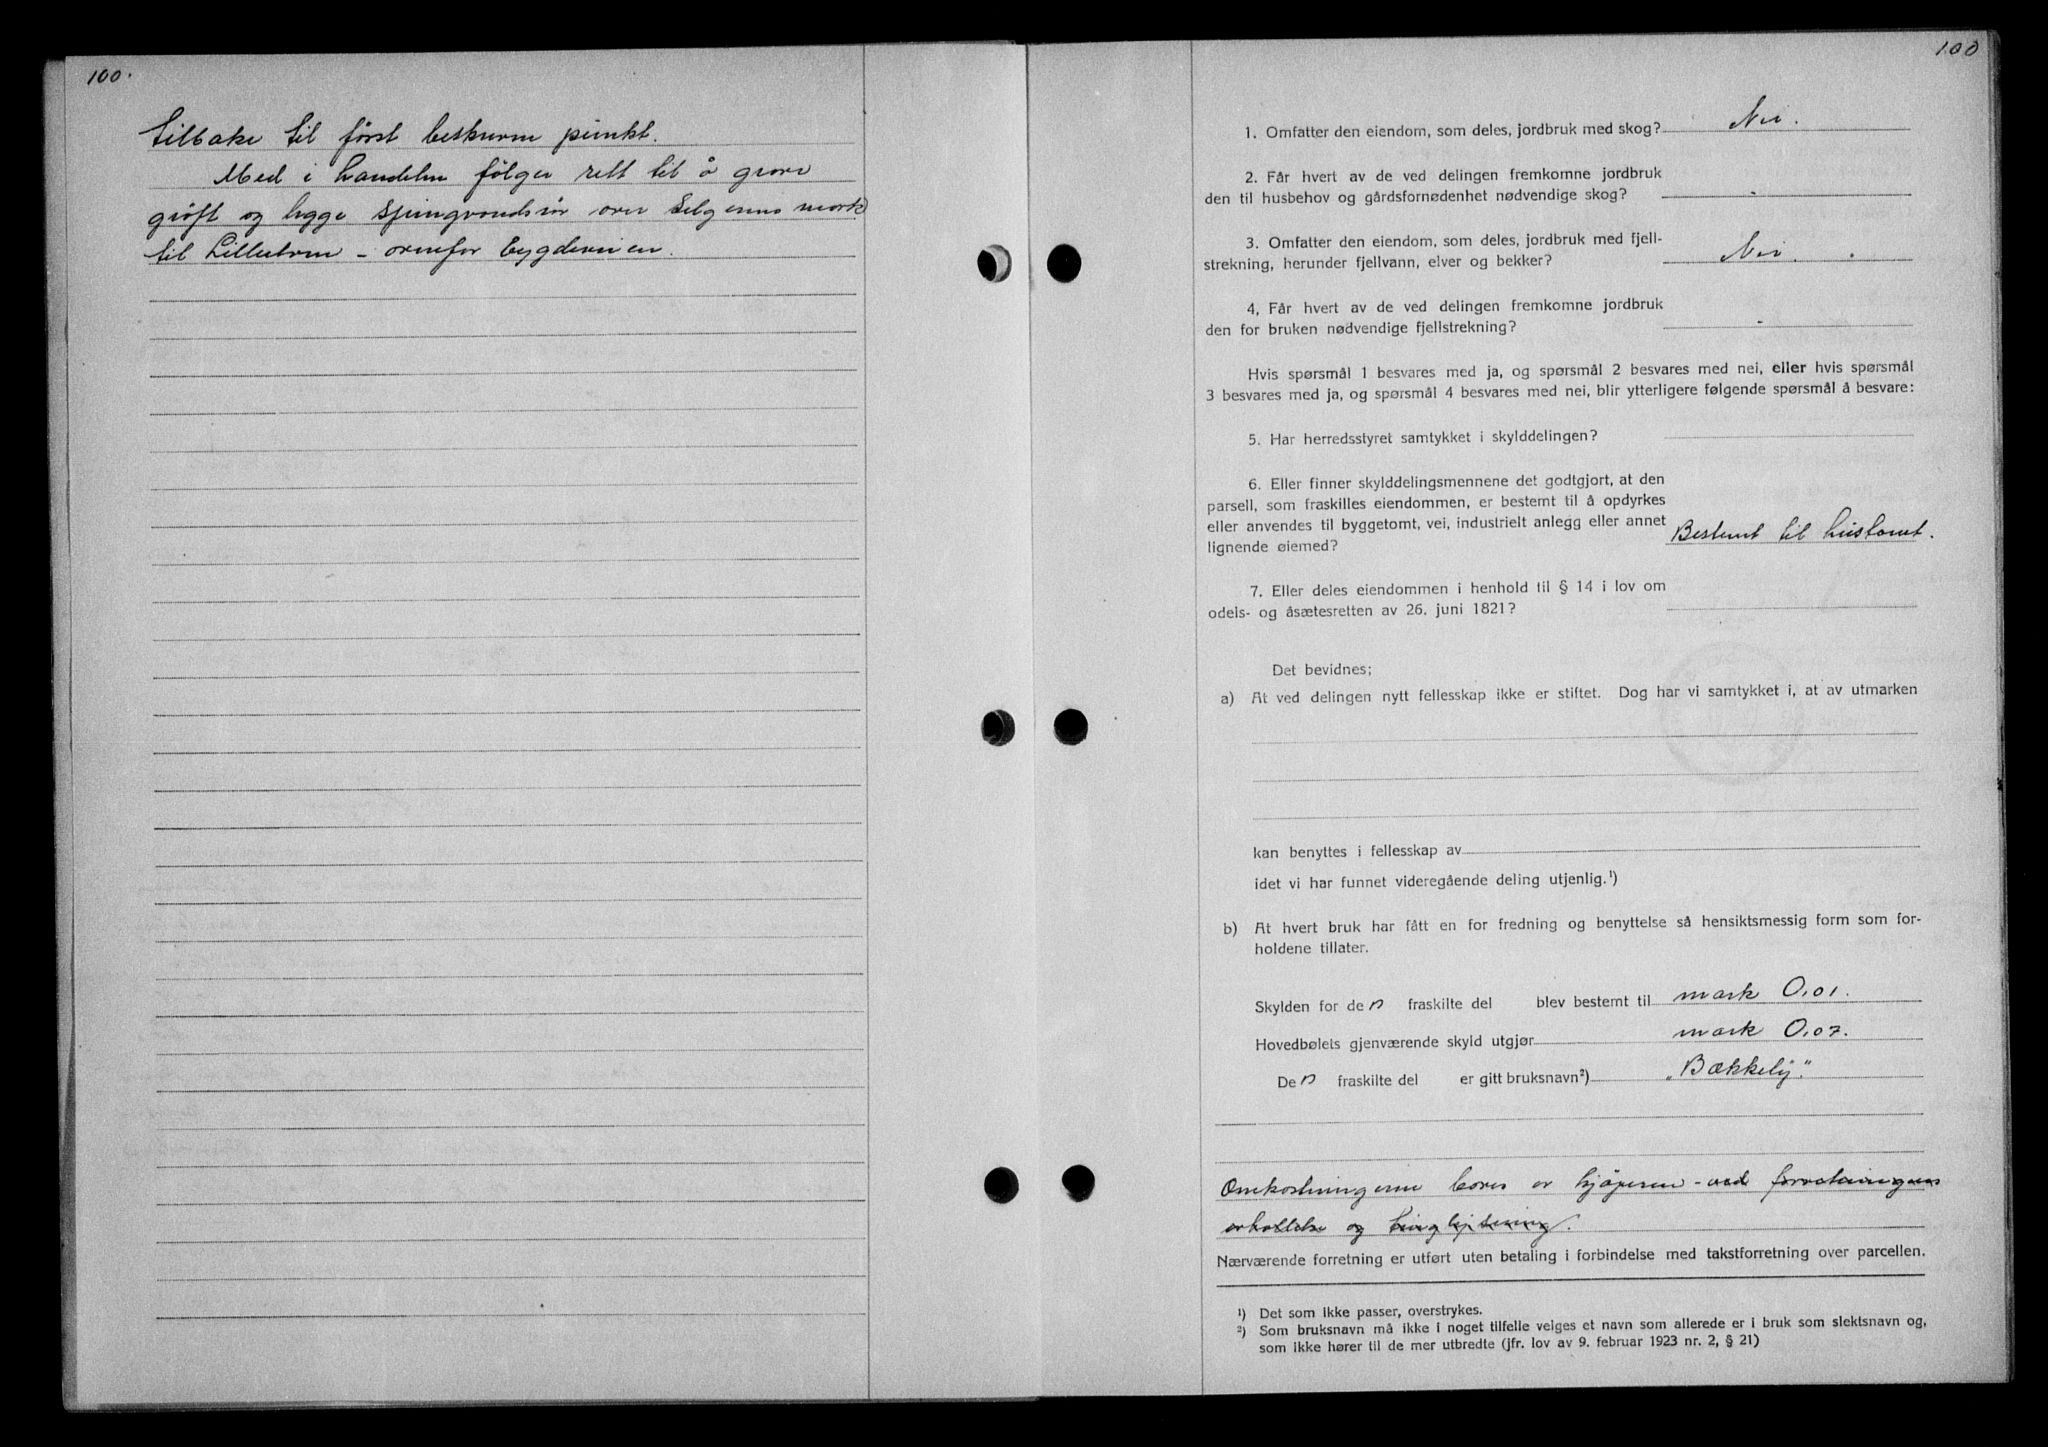 100.
tilbake til først beskrevne punkt.
Med i handelen følger rett til å grave
grøft og legge springvandsrør over selgerens mark
til Lilleelven – ovenfor bygdeveien.
100
1. Omfatter den eiendom, som deles, jordbruk med skog? Nei.
2. Får hvert av de ved delingen fremkomne jordbruk
den til husbehov og gårdsfornødenhet nødvendige skog?
3. Omfatter den eiendom, som deles, jordbruk med fjell-
strekning, herunder fjellvann, elver og bekker? Nei.
4, Får hvert av de ved delingen fremkomne jordbruk
den for bruken nødvendige fjellstrekning?
Hvis spørsmål 1 besvares med ja, og spørsmål 2 besvares med nei, eller hvis spørsmål
3 besvares med ja, og spørsmål 4 besvares med nei, blir ytterligere følgende spørsmål å besvare:
5. Har herredsstyret samtykket i skylddelingen?
6. Eller finner skylddelingsmennene det godtgjort, at den
parsell, som fraskilles eiendommen, er bestemt til å opdyrkes
eller anvendes til byggetomt, vei, industrielt anlegg eller annet
lignende øiemed? Bestemt til hustomt.
7. Eller deles eiendommen i henhold til § 14 i lov om
odels- og åsætesretten av 26. juni 1821?
Det bevidnes;
a) At ved delingen nytt fellesskap ikke er stiftet. Dog har vi samtykket i, at av utmarken
kan benyttes i fellesskap av
idet vi har funnet videregående deling utjenlig.¹)
b) At hvert bruk har fått en for fredning og benyttelse så hensiktsmessig form som for-
holdene tillater.
Skylden for de n fraskilte del blev bestemt til mark 0,01.
Hovedbølets gjenværende skyld utgjør mark 0,07.
De n fraskilte del er gitt bruksnavn²) „Bækkely“.
Omkostningene bæres av kjøperen – ved forretningens
avholdelse og tinglysning.
Nærværende forretning er utført uten betaling i forbindelse med takstforretning over parcellen.
¹) Det som ikke passer, overstrykes.
²) Som bruksnavn må ikke i noget tilfelle velges et navn som allerede er i bruk som slektsnavn og,
som ikke hører til de mer utbredte (jfr. lov av 9. februar 1923 nr. 2, § 21)